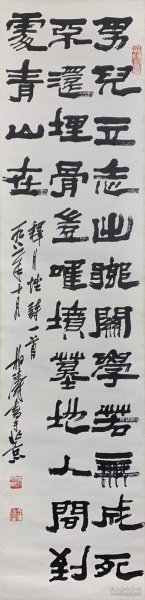 男兒立志出鄉關學若無成死
不還埋骨豈唯墳墓地人間到
處青山在
釋月性詩一首
年十月